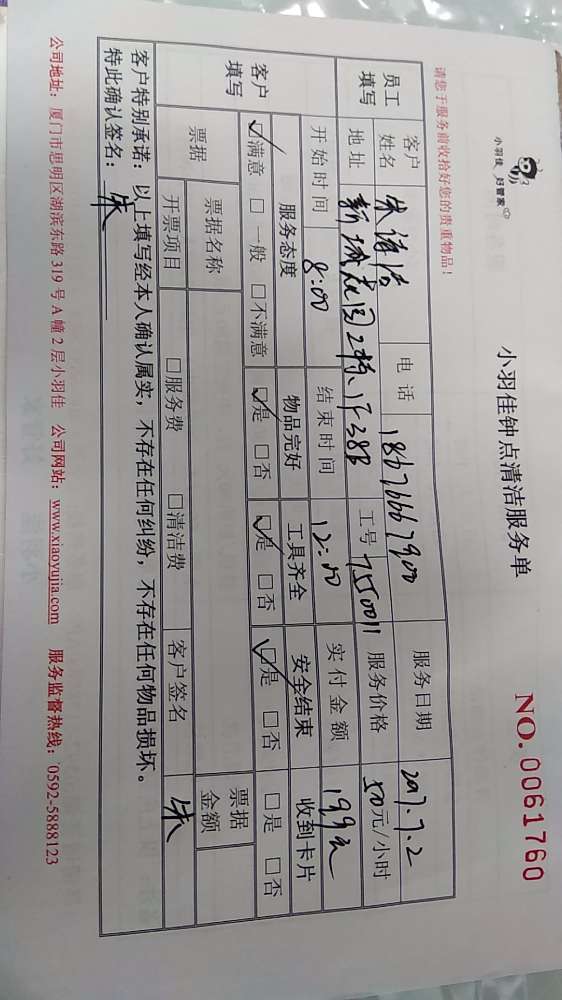 小羽佳 好管家
小羽佳钟点清洁服务单
NO. 0061760
请您于服务前收拾好您的贵重物品！
员工填写 客户姓名 朱 洁 电话 18676667900 服务日期 2017.7.2
地址 新城花园2栋、1F38B 工号 7550011 服务价格 50元/小时
开始时间 8:00 结束时间 12:00 实付金额 199元
客户填写 服务态度 物品完好 工具齐全 安全结束 收到卡片
☑满意 □一般 □不满意 ☑是 □否 ☑是 □否 ☑是 □否 □是 □否
票据 票据名称 票据金额
开票项目 □服务费 □清洁费 客户签名 朱
客户特别承诺：以上填写经本人确认属实，不存在任何纠纷，不存在任何物品损坏。
特此确认签名： 朱
公司地址：厦门市思明区湖滨东路 319 号 A 幢 2 层小羽佳 公司网站：www.xiaoyujia.com 服务监督热线：0592-5888123